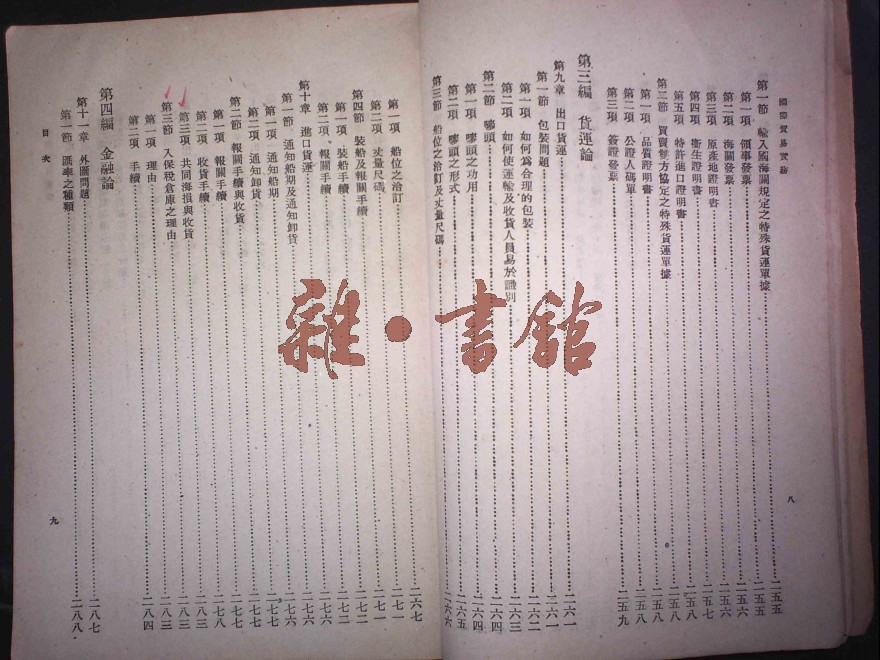 國際貿易實務
第一節 輸入國海關規定之特殊貨運單據……二五五
第一項 領事發票……二五五
第二項 海關發票……二五六
第三項 原產地證明書……二五七
第四項 衛生證明書……二五八
第五項 特許進口證明書……二五八
第二節 買賣雙方協定之特殊貨運單據……二五八
第一項 品質證明書……二五八
第二項 公證人碼單……二五九
第三項 簽證發票……二五九
第三編 貨運論
第九章 出口貨運……二六一
第一節 包裝問題……二六一
第一項 如何為合理的包裝……二六二
第二項 如何使運輸及收貨人員易於識別……二六三
第二節 嘜頭……二六四
第一項 嘜頭之功用……二六四
第二項 嘜頭之形式……二六五
第三節 船位之洽訂及丈量尺碼……二六六
八
第一項 船位之洽訂……二六七
第二項 丈量尺碼……二七一
第四節 裝船及報關手續……二七一
第一項 裝船手續……二七二
第二項 報關手續……二七六
第十章 進口貨運……二七六
第一節 通知船期及通知卸貨……二七六
第一項 通知船期……二七七
第二項 通知卸貨……二七七
第二節 報關手續與收貨……二七七
第一項 報關手續……二七八
第二項 收貨手續……二八三
第三項 共同海損與收貨……二八三
第三節 入保稅倉庫之理由……二八三
第一項 理由
第二項 手續……二八四
第四編 金融論
第十一章 外匯問題……二八七
第一節 匯率之種類……二八八
目次
九
雜·書館